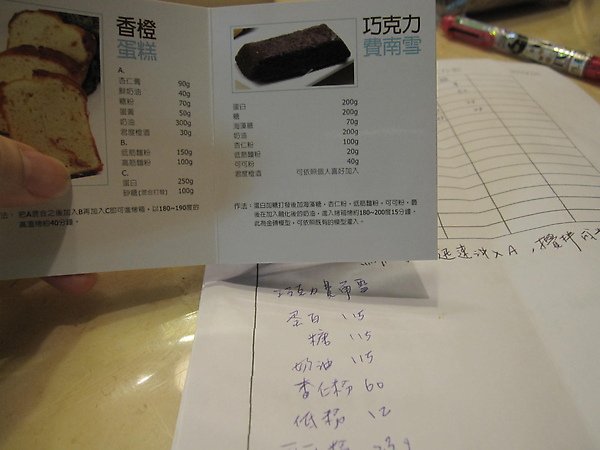 香橙
蛋糕
A.
杏仁膏 90g
鮮奶油 40g
糖粉 70g
蛋黃 50g
奶油 300g
君度橙酒 30g
B.
低筋麵粉 150g
高筋麵粉 100g
C.
蛋白 250g
砂糖(混合打發) 100g
法： 把A混合之後加入B再加入C即可進烤箱，以180~190度的
高溫烤約40分鐘。
巧克力
費南雪
蛋白 200g
糖 200g
海藻糖 70g
奶油 200g
杏仁粉 100g
低筋麵粉 20g
可可粉 40g
君度橙酒 可依照個人喜好加入
作法：蛋白加糖打發後加海藻糖，杏仁粉，低筋麵粉，可可粉，最
後在加入融化後的奶油，進入烤箱烤約180~200度15分鐘，
此為金磚模型，可依照既有的模型灌入。
巧克力費南雪
蛋白 115
糖 115
奶油 115
杏仁粉 60
低粉 12